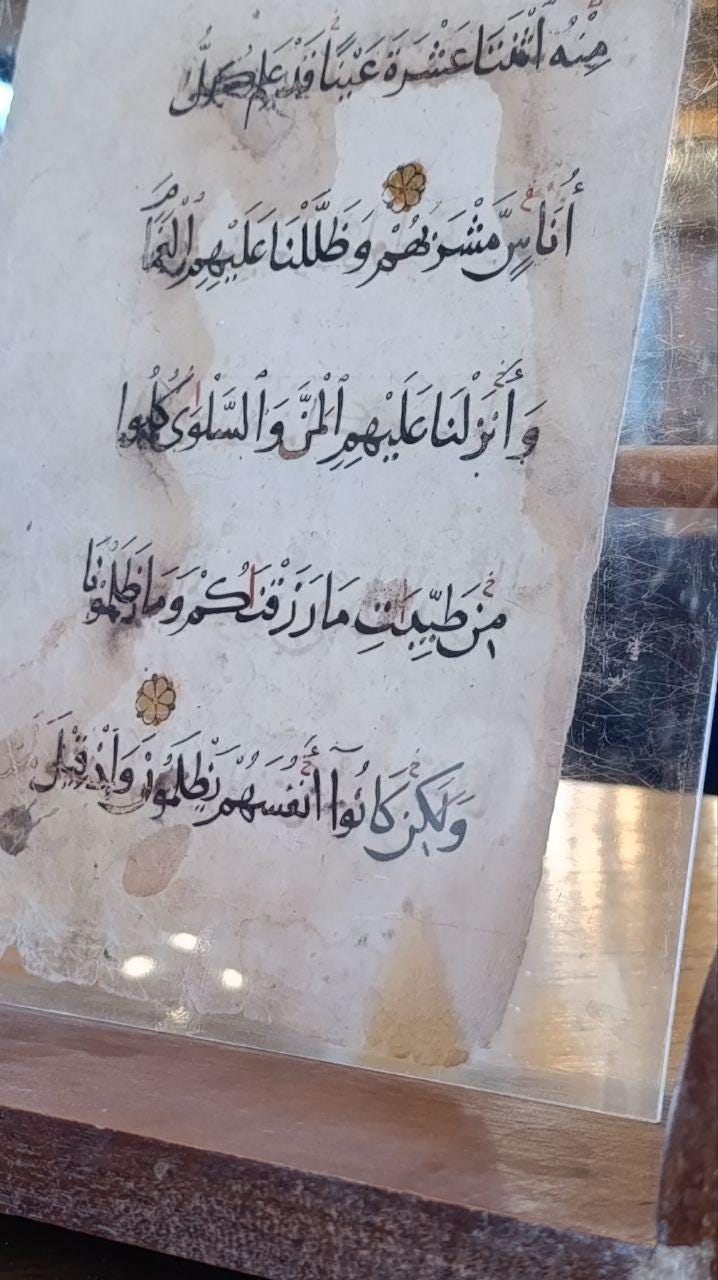 مِنْهُ ٱثْنَتَا عَشْرَةَ عَيْنًا قَدْ عَلِمَ كُلُّ
أُنَاسٍ مَّشْرَبَهُمْ وَظَلَّلْنَا عَلَيْهِمِ ٱلْغَمَٰمَ
وَأَنْزَلْنَا عَلَيْهِمِ ٱلْمَنَّ وَٱلسَّلْوَىٰ كُلُوا
مِنْ طَيِّبَٰتِ مَا رَزَقْنَٰكُمْ وَمَا ظَلَمُونَا
وَلَٰكِنْ كَانُوٓا أَنْفُسَهُمْ يَظْلِمُونَ وَإِذْ قِيلَ